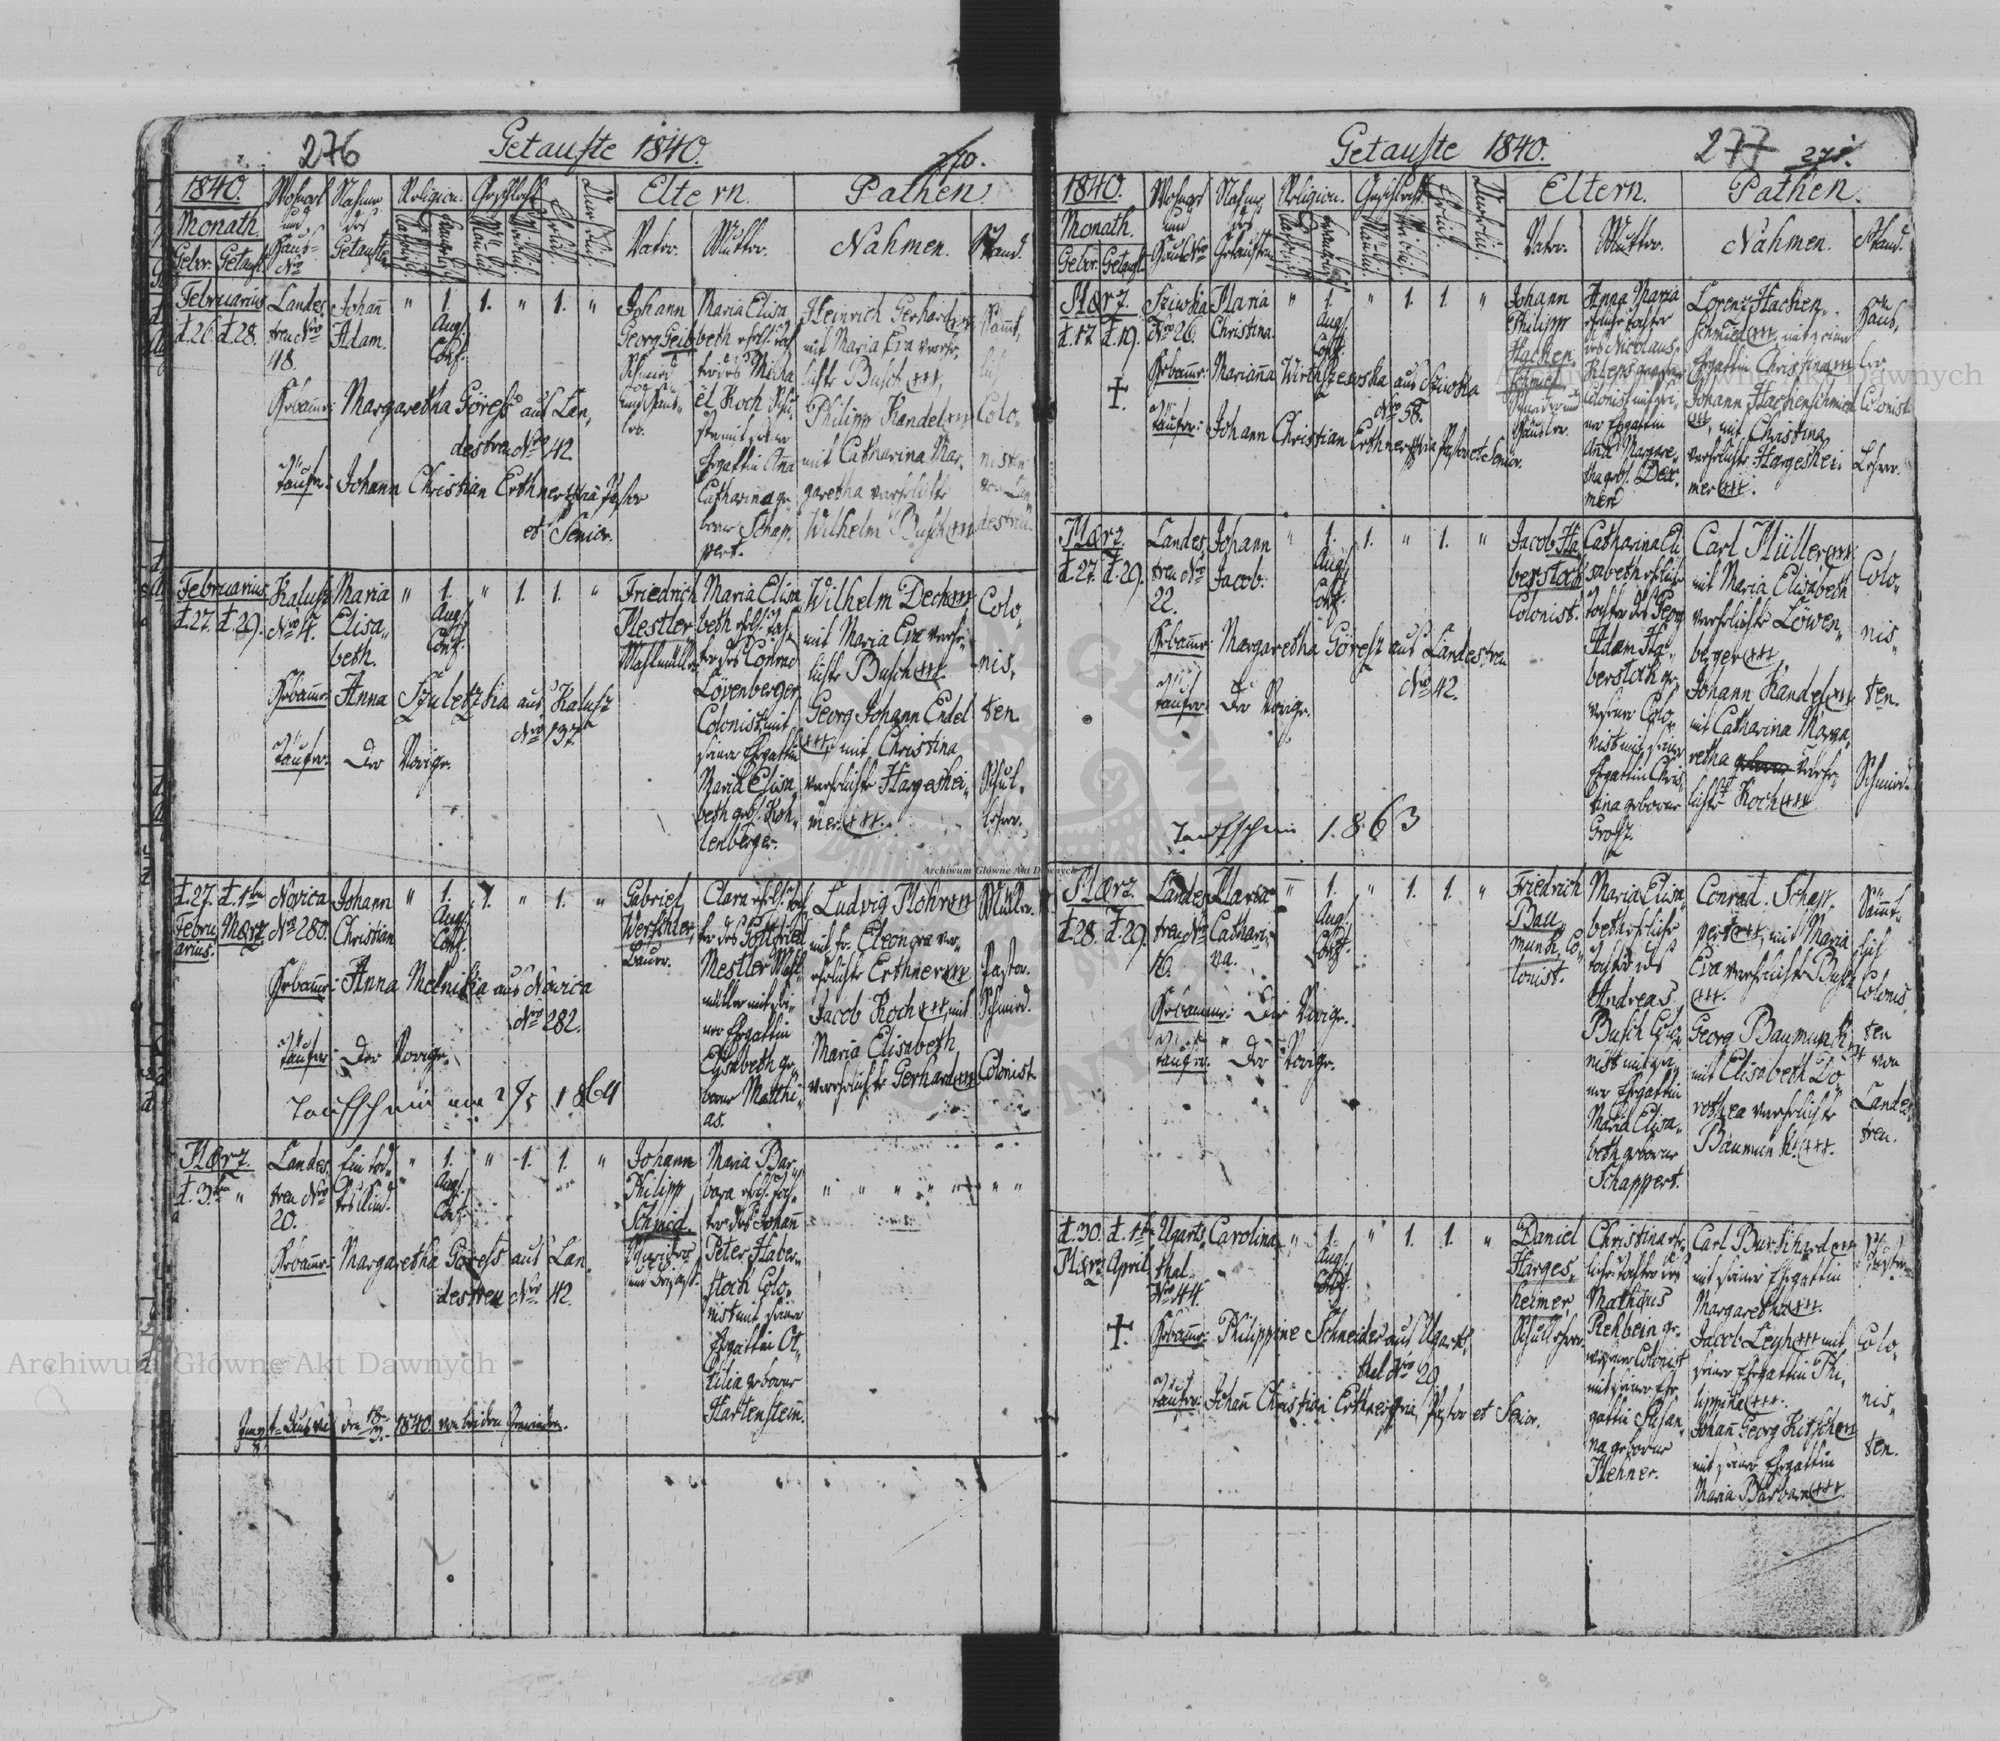 276
Getaufte 1840.
270.
1840.
Wohnort und Haus- Nro
Nahme des Getauften
Religion.
Geschlecht
Eltern.
Pathen.
Monath.
Gebor. Getauft
Vater. Mutter.
Nahmen. Stand.
Februarius
d. 26. d. 28.
Landes,
treu Nro
48.
Johañ
Adam.
" 1. 1. " 1. "
Aug.
Conf.
Johann
Georg Geib
Schmied
Maria Elisa
beth ehel. Toch
ter des Micha
el Koch
mit seiner
Ehgattin Aña
Catharina ge,
borne Schap,
pert.
Heinrich Gerhard
mit Maria Eva verehe,
lichte Busch +++,
Philipp Kandel
mit Catharina Mar,
garetha verehelichte
Wilhelm Busch
Sämt,
lich
Colo,
nisten
von Lan
destreu.
Hebamme: Margaretha Göress aus Lan,
destreu Nro 42.
Täufer: Johann Christian Erthner Pastor
et Senior.
Februarius
d. 27. d. 29.
Kalusz
Nro 4.
Maria
Elisa,
beth.
" 1. " 1. 1. "
Aug.
Conf.
Friedrich
Mestler
Mahlmüller
Maria Elisa
beth ehel. Toch
ter des Conrad
Lövenberger
Colonist mit
seiner Ehgattin
Maria Elisa,
beth geb. Koh,
lenberger.
Wilhelm Deck
mit Maria Eva verehe,
lichte Busch +++.
Georg Johann Endel
+++, mit Christina
verehelichte Hargeshei,
mer +++.
Colo,
nis,
ten.
Schul,
lehrer.
Hebamme: Anna Szuletzkia aus Kalusz
Nro 137.
Täufer: Der Vorige.
d. 27. d. 1ten
Febru März
arius.
Novica
Nro 280.
Johann
Christian
" 1. 1. " 1. "
Aug.
Conf.
Gabriel
Werschler,
Bauer.
Clara ehel. Toch
ter des Gottfried
Mestler Mahl,
müller mit sei,
ner Ehgattin
Elisabeth ge,
borne Matthi,
as.
Ludvig Mohr
mit fr. Eleonora ver,
ehelichte Erthner
Jacob Koch +++, mit
Maria Elisabeth
verehelichte Gerhard
Müller.
Pastor.
Schmied.
Colonist.
Hebamme: Anna Melnika aus Novica
Nro 282.
Täufer: Der Vorige.
Taufschein 1864
März
d. 3ten "
Landes,
treu Nro
20.
Ein tod,
tes Kind.
" 1. " 1. 1. "
Aug.
Conf.
Johann
Philipp
Schmid.
Maria Bar,
bara ehel. Toch,
ter des Johañ
Peter Haber,
stock Colo,
nist mit seiner
Ehgattin Ot,
tilia geborne
Hartenstein.
" " " " " " "
Hebamme: Margaretha Göress aus Lan,
destreu Nro 42.
1840.
277 271.
Getaufte 1840.
1840.
Wohnort und Haus Nro
Nahme des Getauften
Religion.
Geschlecht.
Eltern.
Pathen.
Monath.
Gebor. Getauft
Vater. Mutter.
Nahmen. Stand.
März.
d. 17. d. 19.
Sziwka
Nro 26.
Maria
Christina.
" 1. " 1. 1. "
Aug.
Conf.
Johann
Philipp
Hachen,
schmid
Schneider und
Häusler.
Anna Maria
eheliche Tochter
des Nicolaus
Kleps
Colonist mit sei,
ner Ehgattin
Aña Margare,
tha geb. Dex,
mer.
Lorenz Hachen,
schmied +++, mit seiner
Ehgattin Christina
Johann Hachenschmied
+++, mit Christina
verehelichte Hargeshei,
mer +++.
Häus,
ler
Colonist.
Lehrer.
+
Hebamme: Marianna Wirthszewska aus Sziwka
Nro 58.
Täufer: Johann Christian Erthner Pastor et Senior.
März
d. 27. d. 29.
Landes,
treu Nro
22.
Johann
Jacob.
" 1. 1. " 1. "
Aug.
Conf.
Jacob Ha,
berstock
Colonist.
Catharina Eli
sabeth eheliche
Tochter des Georg
Adam Ha,
berstock ge,
wesener Colo,
nist mit seiner
Ehgattin Chris,
tina geborne
Grosz.
Carl Müller
mit Maria Elisabeth
verehelichte Löwen,
berger +++,
Johann Kandel
mit Catharina Marga,
retha verehe,
lichte Koch +++
Colo,
nis,
ten.
Schmied.
Hebamme: Margaretha Göresz aus Landestreu
Nro 42.
Täufer: Der Vorige.
Taufschein 1863
März
d. 28. d. 29.
Landes,
treu Nro
16.
Maria
Cathari,
na.
" 1. " 1. 1. "
Aug.
Conf.
Friedrich
Bau,
munk, Co,
lonist.
Maria Elisa,
beth eheliche
Tochter des
Andreas
Busch Colo,
nist mit sei,
ner Ehgattin
Maria Elisa,
beth geborne
Schappert.
Conrad Schap,
pert +++, mit Maria
Eva verehelichte Busch
+++.
Georg Baumunk
mit Elisabeth Do,
rothea verehelichte
Baumunk +++.
Sämt,
lich
Colonis,
ten
von
Landes,
treu.
Hebamme: Die Vorige.
Täufer: Der Vorige.
d. 30. d. 1te
März April
Ugarts,
thal
Nro 44.
Carolina
" 1. " 1. 1. "
Aug.
Conf.
Daniel
Harges,
heimer,
Schullehrer.
Christina ehe,
liche Tochter des
Mathäus
Rehbein ge,
wesener Colonist
mit seiner Eh,
gattin Susan,
na geborne
Mehner.
Carl Burkhard
mit seiner Ehgattin
Margaretha +++.
Jacob Leyh +++ mit
seiner Ehgattin Phi,
lippina +++.
Johañ Georg Kitsch
mit seiner Ehgattin
Maria Barbara +++.
Colo,
nis,
ten.
+
Hebamme: Philippine Schneider aus Ugarts,
thal Nro 29
Täufer: Johañ Christian Erthner Pastor et Senior.
Archiwum Główne Akt Dawnych
Archiwum Główne Akt Dawnych
Archiwum Główne Akt Dawnych